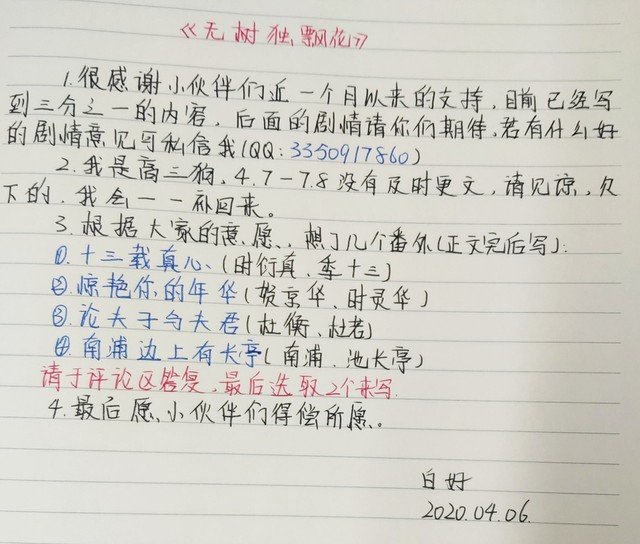 《无树独飘花》
1.很感谢小伙伴们近一个月以来的支持,目前已经写
到三分之一的内容,后面的剧情请你们期待,若有什么好
的剧情意见可私信我(QQ:3350917860)
2.我是高三狗,4.7-7.8没有及时更文,请见谅,欠
下的.我会一一补回来。
3.根据大家的意愿,想了几个番外(正文完后写):
①.十三载真心(时衍真、季十三)
②惊艳你的年华(贺京华、时灵华)
③论夫子与夫君(杜衡、杜若)
④.南浦边上有长亭(南浦、池长亭)
请于评论区答复,最后选取2个来写.
4.最后愿小伙伴们得偿所愿。
白好
2020.04.06.